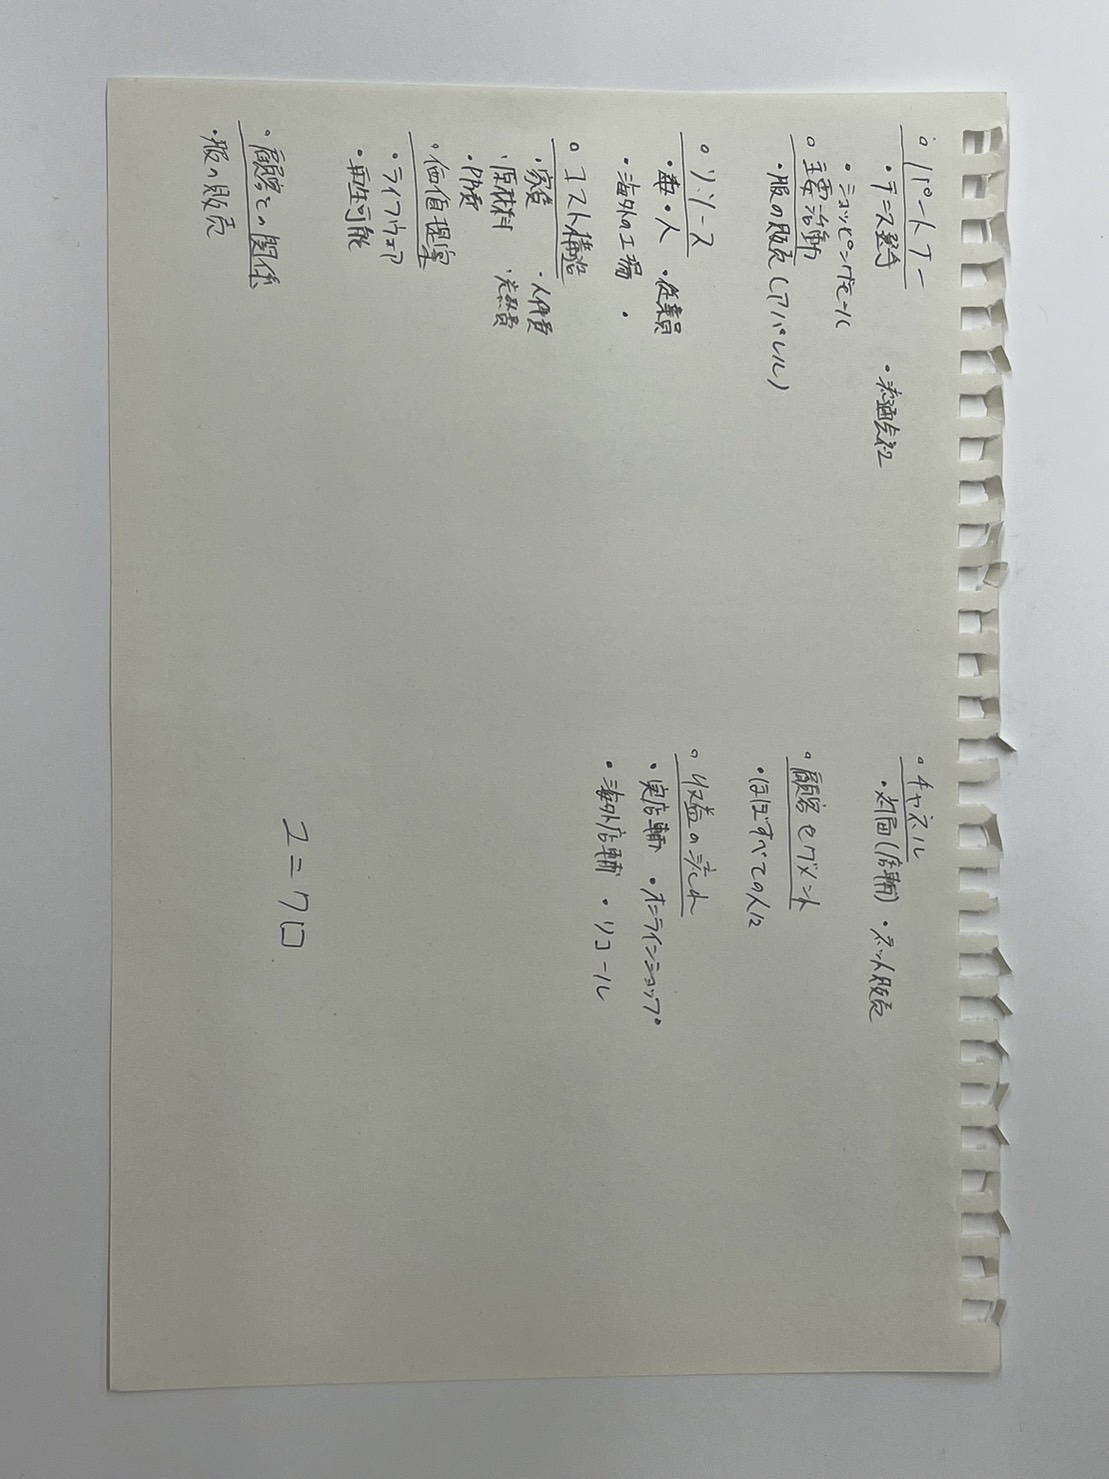 。パートナー
・テニス選手 ・流通会社
・ショッピングモール
。主要活動
・服の販売(アパレル)
。リソース
・人 ・従業員
・海外の工場 ・
。コスト構造
・家賃 ・人件費
・原材料 ・広告費
・PR費
。価値提案
・ライフウェア
・再生可能
。顧客との関係
・服の販売
。チャネル
・対面(店舗) ・ネット販売
。顧客セグメント
・ほぼすべての人に
。収益の流れ
・実店舗 ・オンラインショップ・
・海外店舗 ・リコール
ユニクロ